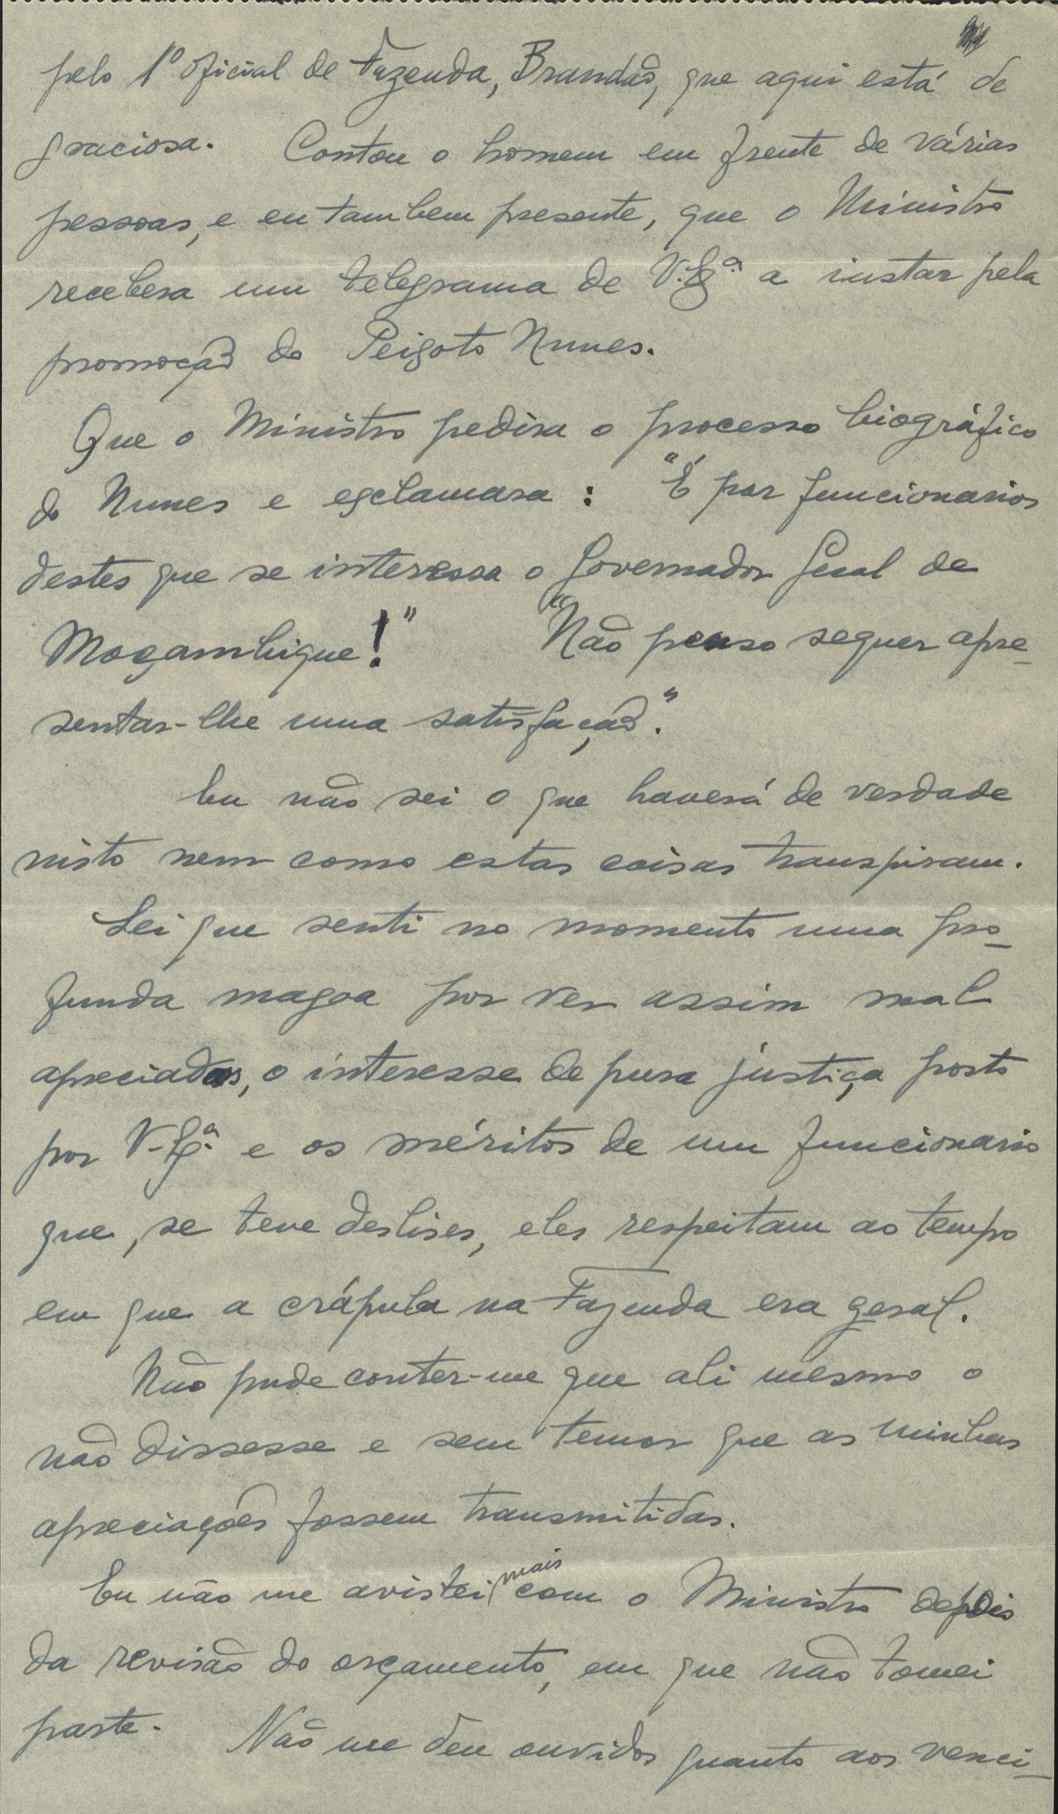 pelo 1º oficial de Fazenda, Brandão, que aqui está de
graciosa. Contou o homem em frente de várias
pessoas, e eu tambem presente, que o Ministro
recebera um telegrama de V. Exª. a instar pela
promoção do Peixoto Nunes.
Que o Ministro pedira o processo biográfico
do Nunes e exclamara: "É por funcionarios
destes que se interessa o Governador Geral de
Moçambique!" "Não penso sequer apre-
sentar-lhe uma satisfação."
Eu não sei o que haverá de verdade
nisto nem como estas coisas transpiram.
Sei que senti no momento uma pro-
funda magoa por ver assim mal
apreciados, o interesse de pura justiça posto
por V. Exª. e os méritos de um funcionario
que, se teve deslises, eles respeitam ao tempo
em que a crápula na Fazenda era geral.
Não pude conter-me que ali mesmo o
não dissesse e sem temor que as minhas
apreciações fossem transmitidas.
Eu não me avistei mais com o Ministro depois
da revisão do orçamento, em que não tomei
parte. Não me deu ouvidos quanto aos venci-